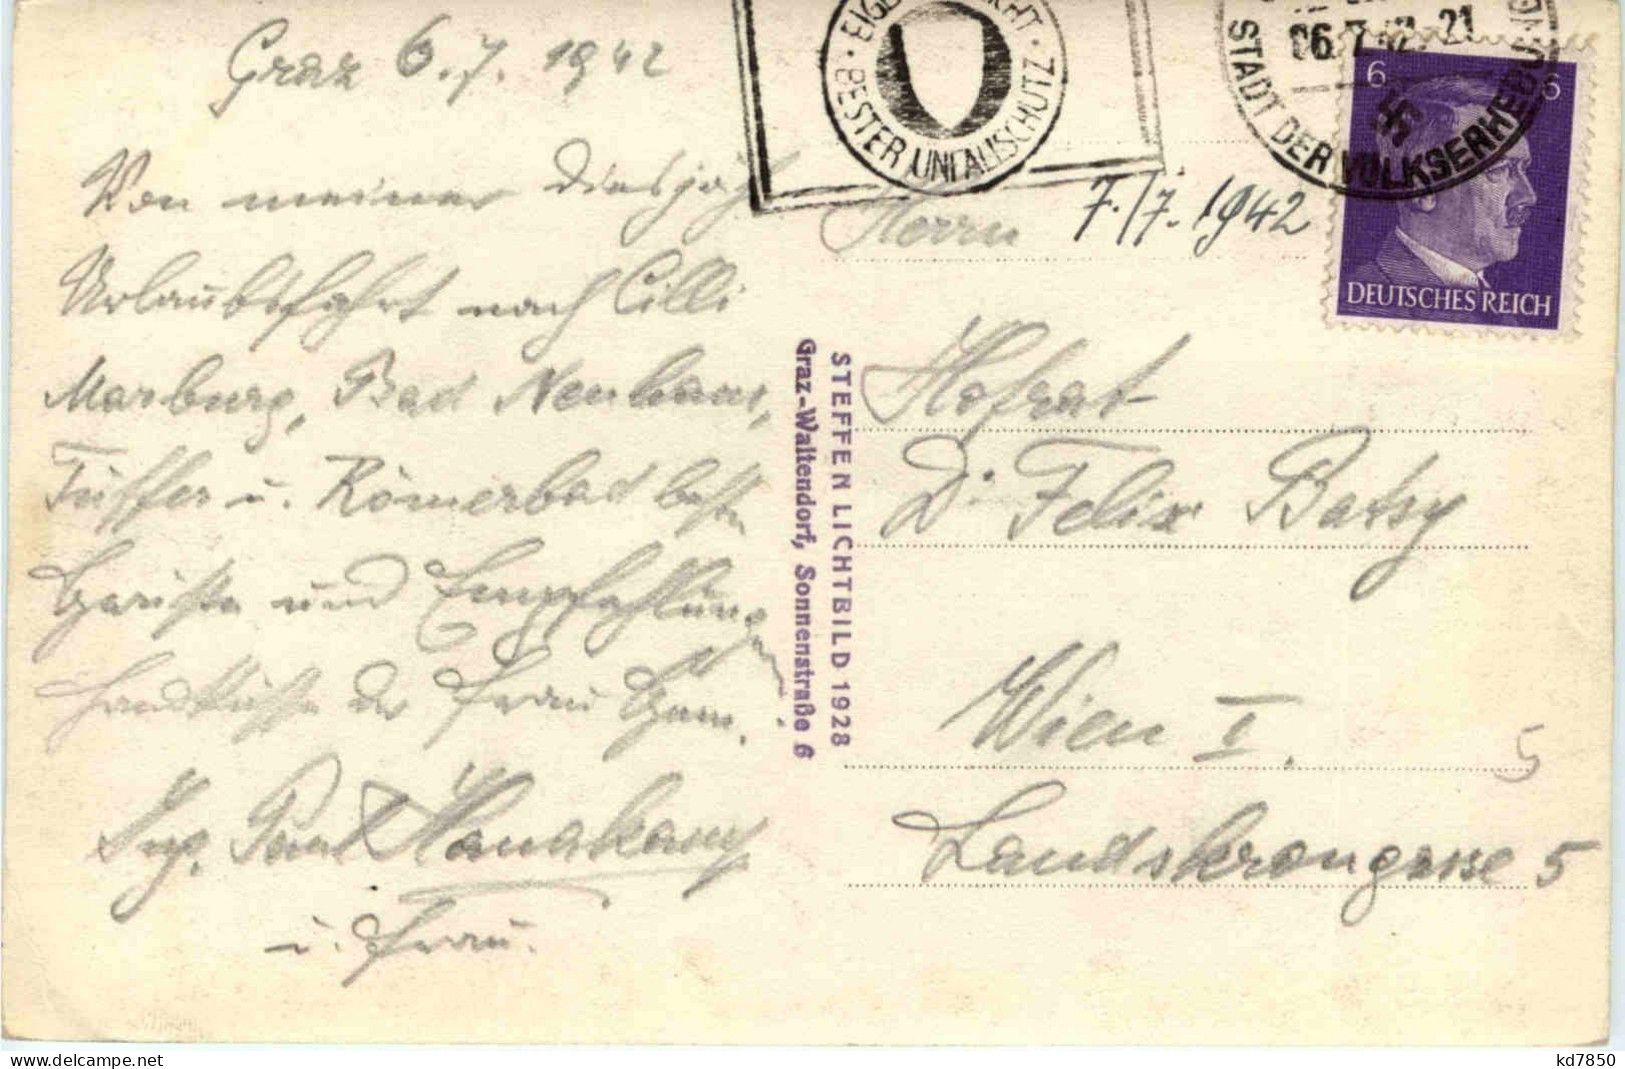 Graz 6.7.1942
Von meiner diesjähr
Urlaubsfahrt nach Cilli
Marburg, Bad Neuhaus,
Tüffer u. Römerbad beste
Grüße und Empfehlungen
Handküsse der Frau Gem.
Ing. Paul
u. Frau.
EIGE CHT · BESTER UNFALLSCHUTZ ·
06.7.42-21
STADT DER VOLKSERHEBUNG
6 6
DEUTSCHES REICH
Herrn 7./7.1942
Hofrat
Dr Felix Batsy
Wien I.
Landskrongasse 5
5
STEFFEN LICHTBILD 1928
Graz-Waltendorf, Sonnenstraße 6
kd7850